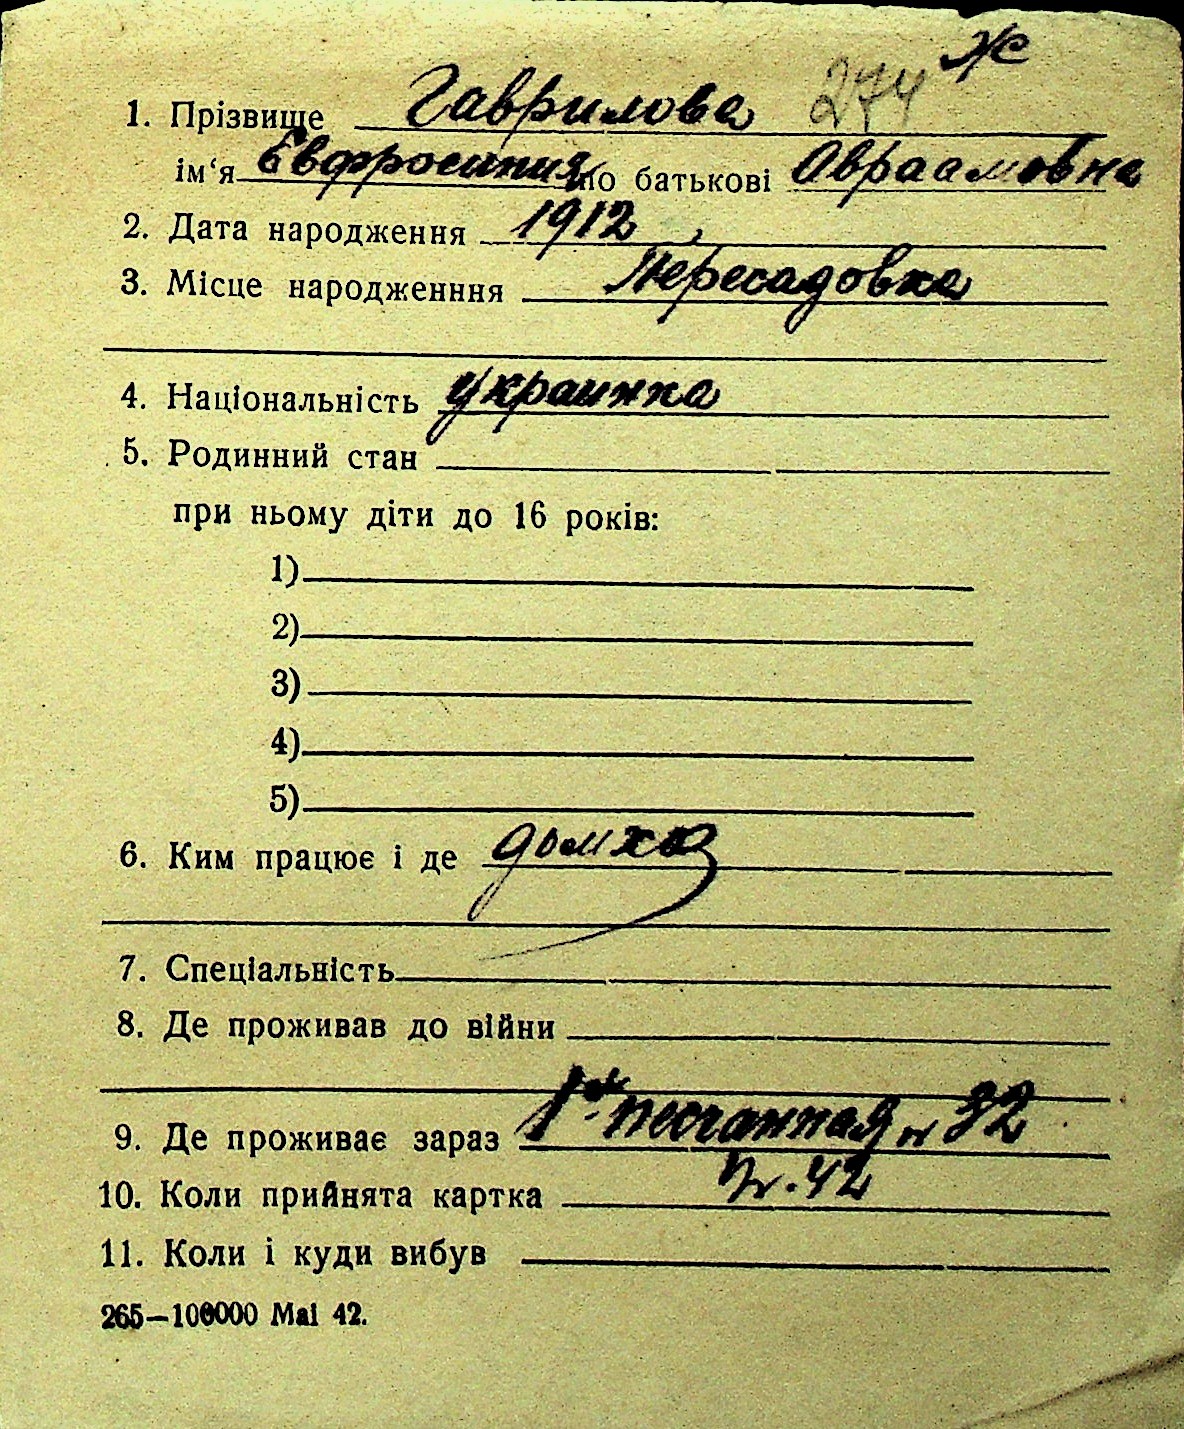 Ж
1. Прізвище Гаврилова 274
ім‘я Евфросиния по батькові Авраамовна
2. Дата народження 1912
3. Місце народженння Пересадовка
4. Національність украинка
5. Родинний стан
при ньому діти до 16 років:
1)
2)
3)
4)
5)
6. Ким працює і де домхоз
7. Спеціальність
8. Де проживав до війни
9. Де проживає зараз 1ая песчанная № 32
10. Коли прийнята картка 42
11. Коли і куди вибув
265—100000 Маі 42.